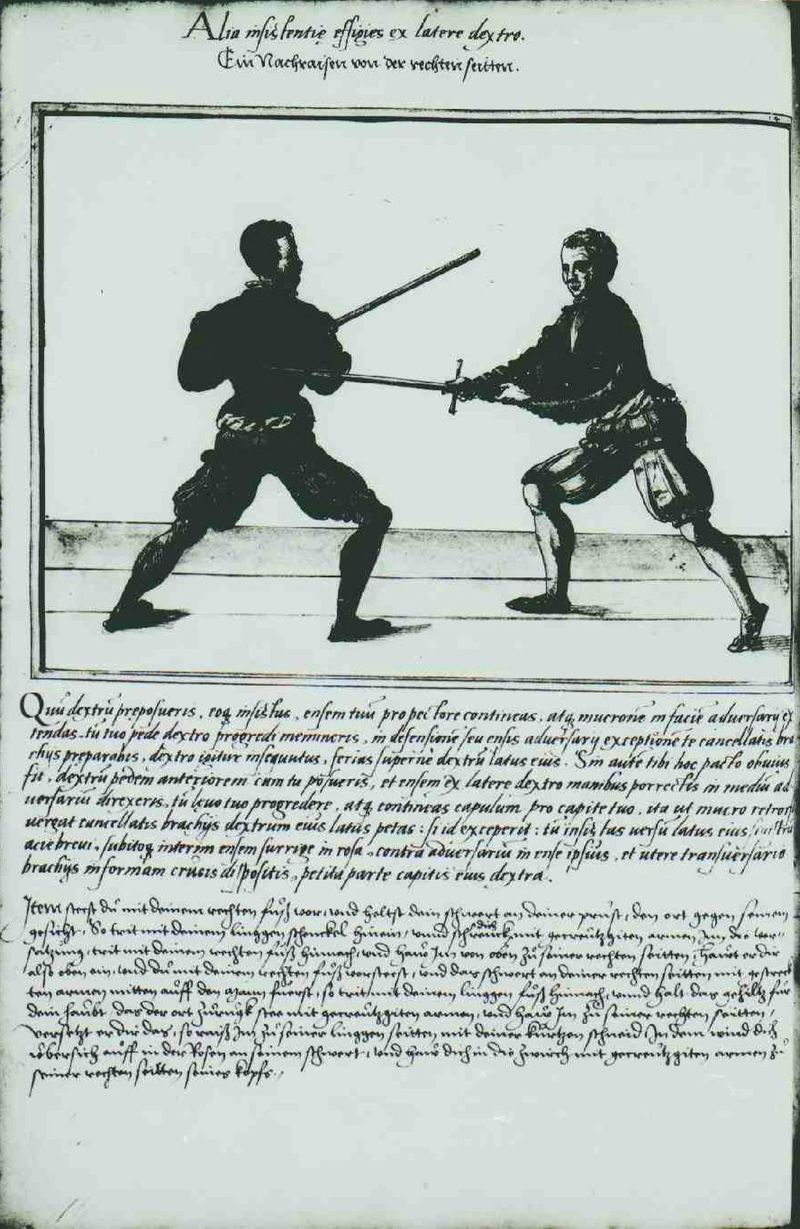 Alia insistentię effigies ex latere dextro.
Ein Nachraisen von der rechten seitten.
Quũ dextrũ preposueris, eoq̃ insistus, ensem tuũ pro pectore contineas, atq̃ mucronẽ in faciẽ adversarÿ ex
tendas. tũ tuo pede dextro progredi memineris, in defensione seu ensis adversarÿ exceptione te cancellatis bra
chÿs preparabis, dextro igitur insequutus, ferias supernè dextrũ latus eius. Sin aute tibi hoc pacto obuius
fit, dextrũ pedem anteriorem cum tu posueris, et ensem ex latere dextro manibus porrectis in mediũ ad
uersariũ direxeris, tũ leuo tuo progredere, atq̃ contineas capulum pro capite tuo, ita ut mucro retror
uergat cancellatis brachÿs dextrum eius latus petas: si id exceperit: tũ insistas uersũ latus eius,
acie breui. subitoq̃ interim ensem surrige in rosa, contra adversariũ in ense ipsius, et utere transuersario
brachÿs in formam crucis dispositis, petita parte capitis eius dextra.
Item steest dů mit deinem rechten fůß vor, vnd heltst dein schwert an deiner prust, den ort gegen seinem
gesicht, So trit mit deinem linggen schenckel hinein, vnnd schrenck dich mit gecreutzgiten armen, Im die ver-
satzung, trit mit deinem rechten fůß hinnach, vnd haw Im von oben zů seiner rechten seitten, hawt er dir
also oben ein, vnd dů mit deinem rechten fůß vorsteest, vnd das schwert an deiner rechten seitten mit gestreck
ten armen mitten auff den mann fuerst, so trit mit deinem linggen fůß hinnach, vnnd halt das gehiltz für
dein haubt, das der ort zurugk stee mit gecreutzgiten armen, vnd haw Im zů seiner rechten seitten,
versetzt er dir das, so raiß Im zů seiner linggen seitten mit deiner kurtzen schneid, In dem wind dich
übersich auff in der Rosen an seinem schwert, vnd haw dich in die zwirch mit gecreutzgiten armen zů
seiner rechten seitten seines kopfs.